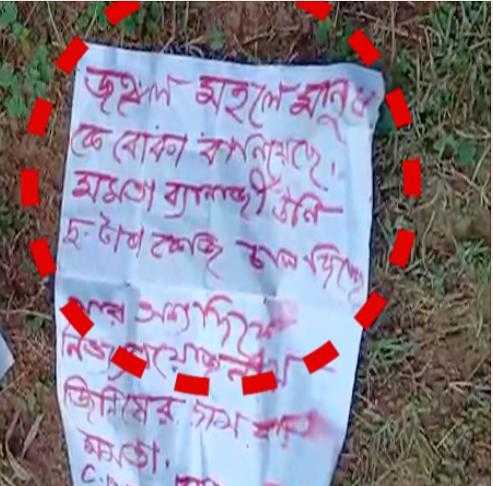 জঙ্গল মহলে মানুষ
কে বোকা বানিয়েছে,
মমতা ব্যানার্জী উনি
দু-টাকা কেজি চাল দিচ্ছে
আর অন্য দিকে
নিত্য প্রয়োজনীয়
জিনিষের দাম
মমতা.